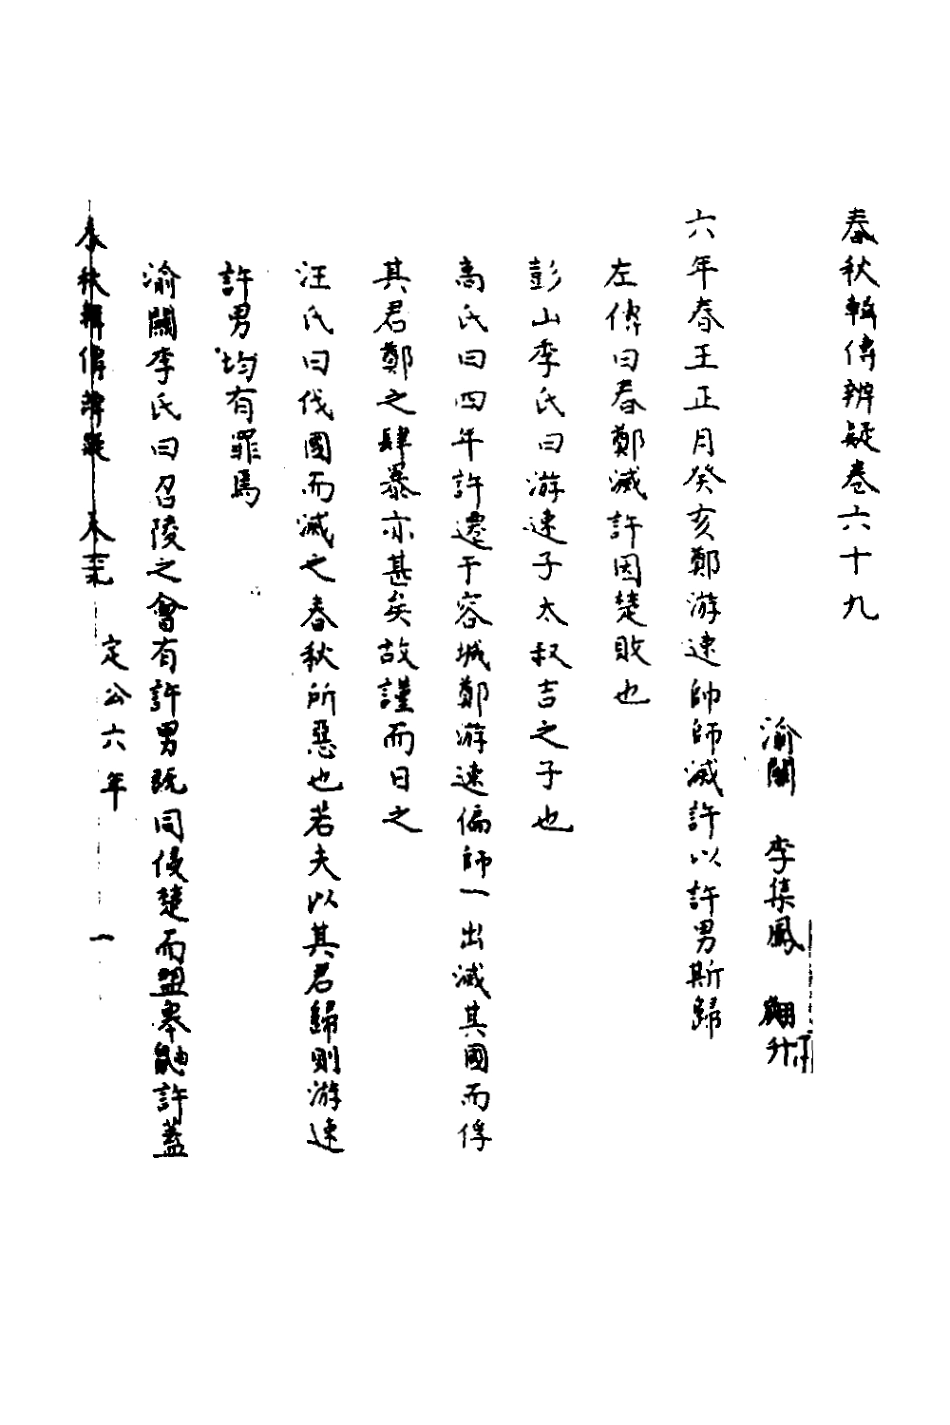 春秋輯傳辨疑卷六十九
渝關 李集鳳 翽升
六年春王正月癸亥鄭游速帥師滅許以許男斯歸
左傳曰春鄭滅許因楚敗也
彭山季氏曰游速子太叔吉之子也
高氏曰四年許遷于容城鄭游速偏師一出滅其國而俘
其君鄭之肆暴亦甚矣故謹而日之
汪氏曰伐國而滅之春秋所惡也若夫以其君歸則游速
許男均有罪焉
渝關李氏曰召陵之會有許男既同侵楚而盟臯鼬許蓋
春秋輯傳辨疑 卷六九 定公六年 一